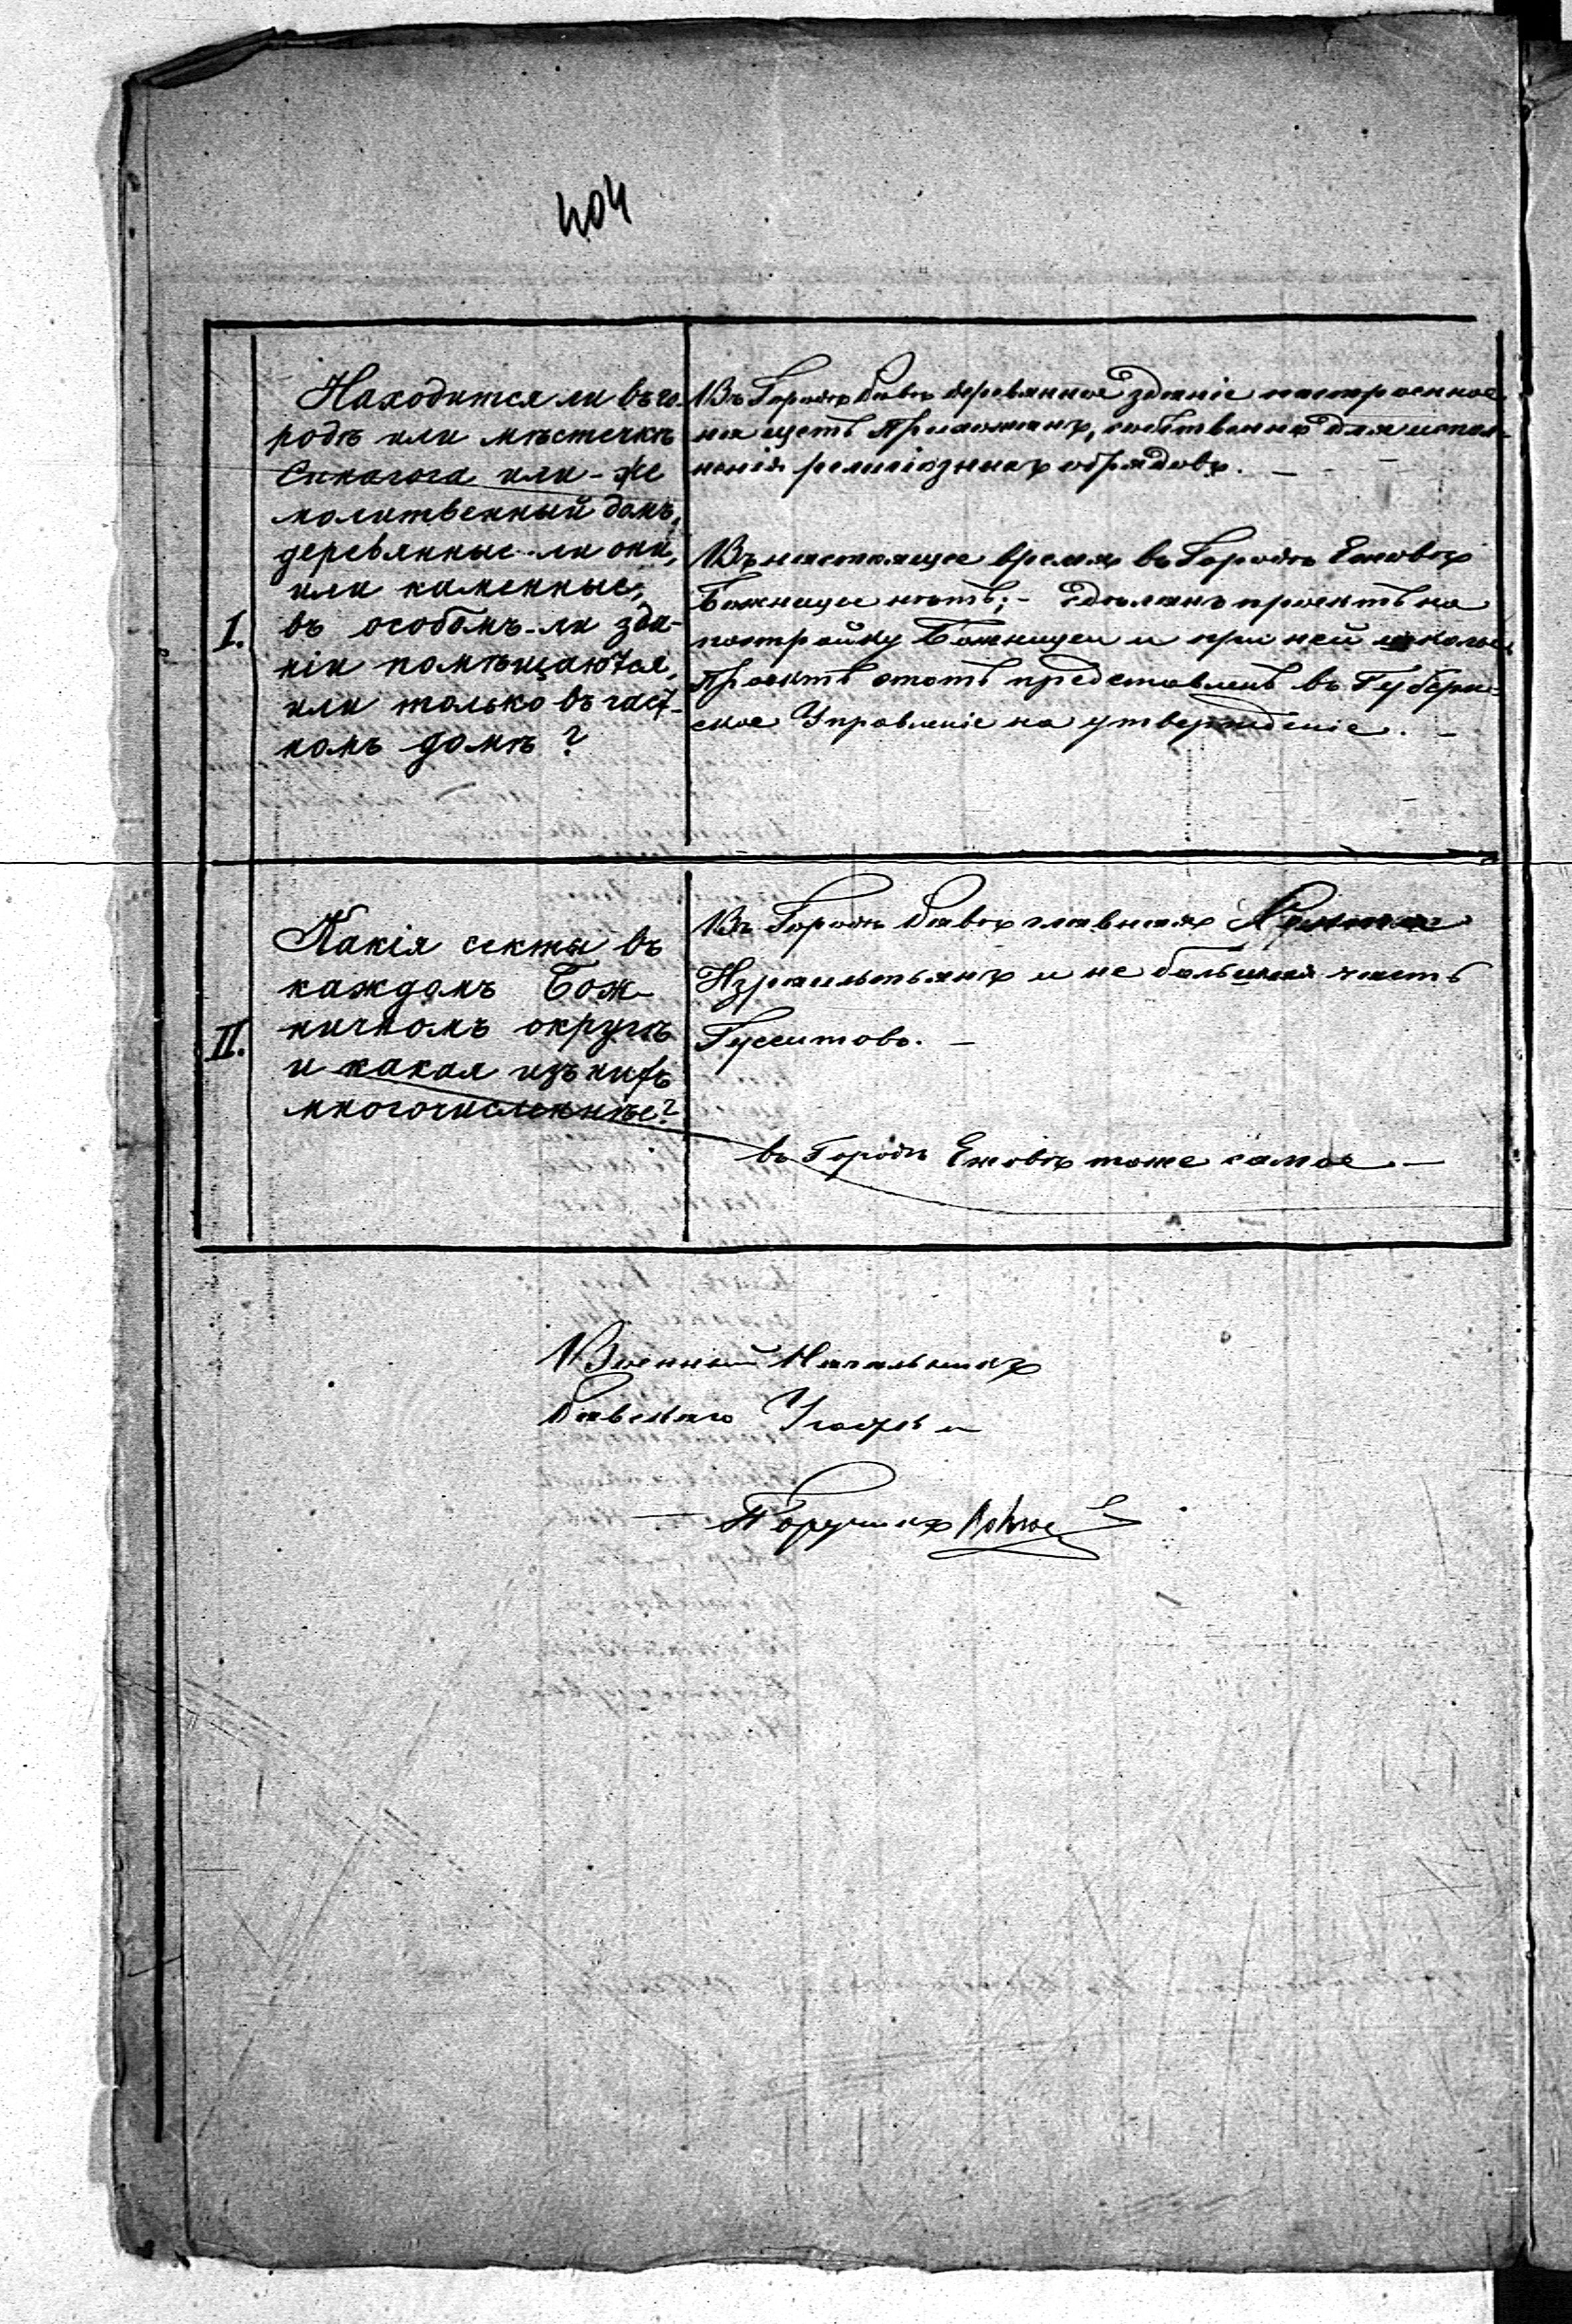 404
I.
Находится ли въ го-
родѣ или мѣстечкѣ
Синагога или-же
молитвенный домъ,
деревянные-ли они,
или каменные,
въ особомъ-ли зда-
ніи помѣщаются,
или только въ част-
номъ домѣ?
Въ Городѣ деревянное зданіе настроенное
на щетъ Прихожанъ, собственно для испол-
ненія религіозныхъ обрядовъ. —
Въ настоящее время въ Городѣ Ежовѣ
Божницы нѣтъ; - Сдѣланъ проектъ на
постройку Божницы и при ней школы
Проектъ этотъ представленъ въ Губерн-
ское Управленіе на утвержденіе. —
II.
Какія секты въ
каждомъ Бож-
ничномъ округѣ
и какая изъ нихъ
многочисленнѣе?
Въ Городѣ главная
Израильтянъ и не большая часть
Гусситовъ. —
въ Городѣ Ежовѣ тоже самое —
Военный Начальникъ
Уѣзда
Поручикъ